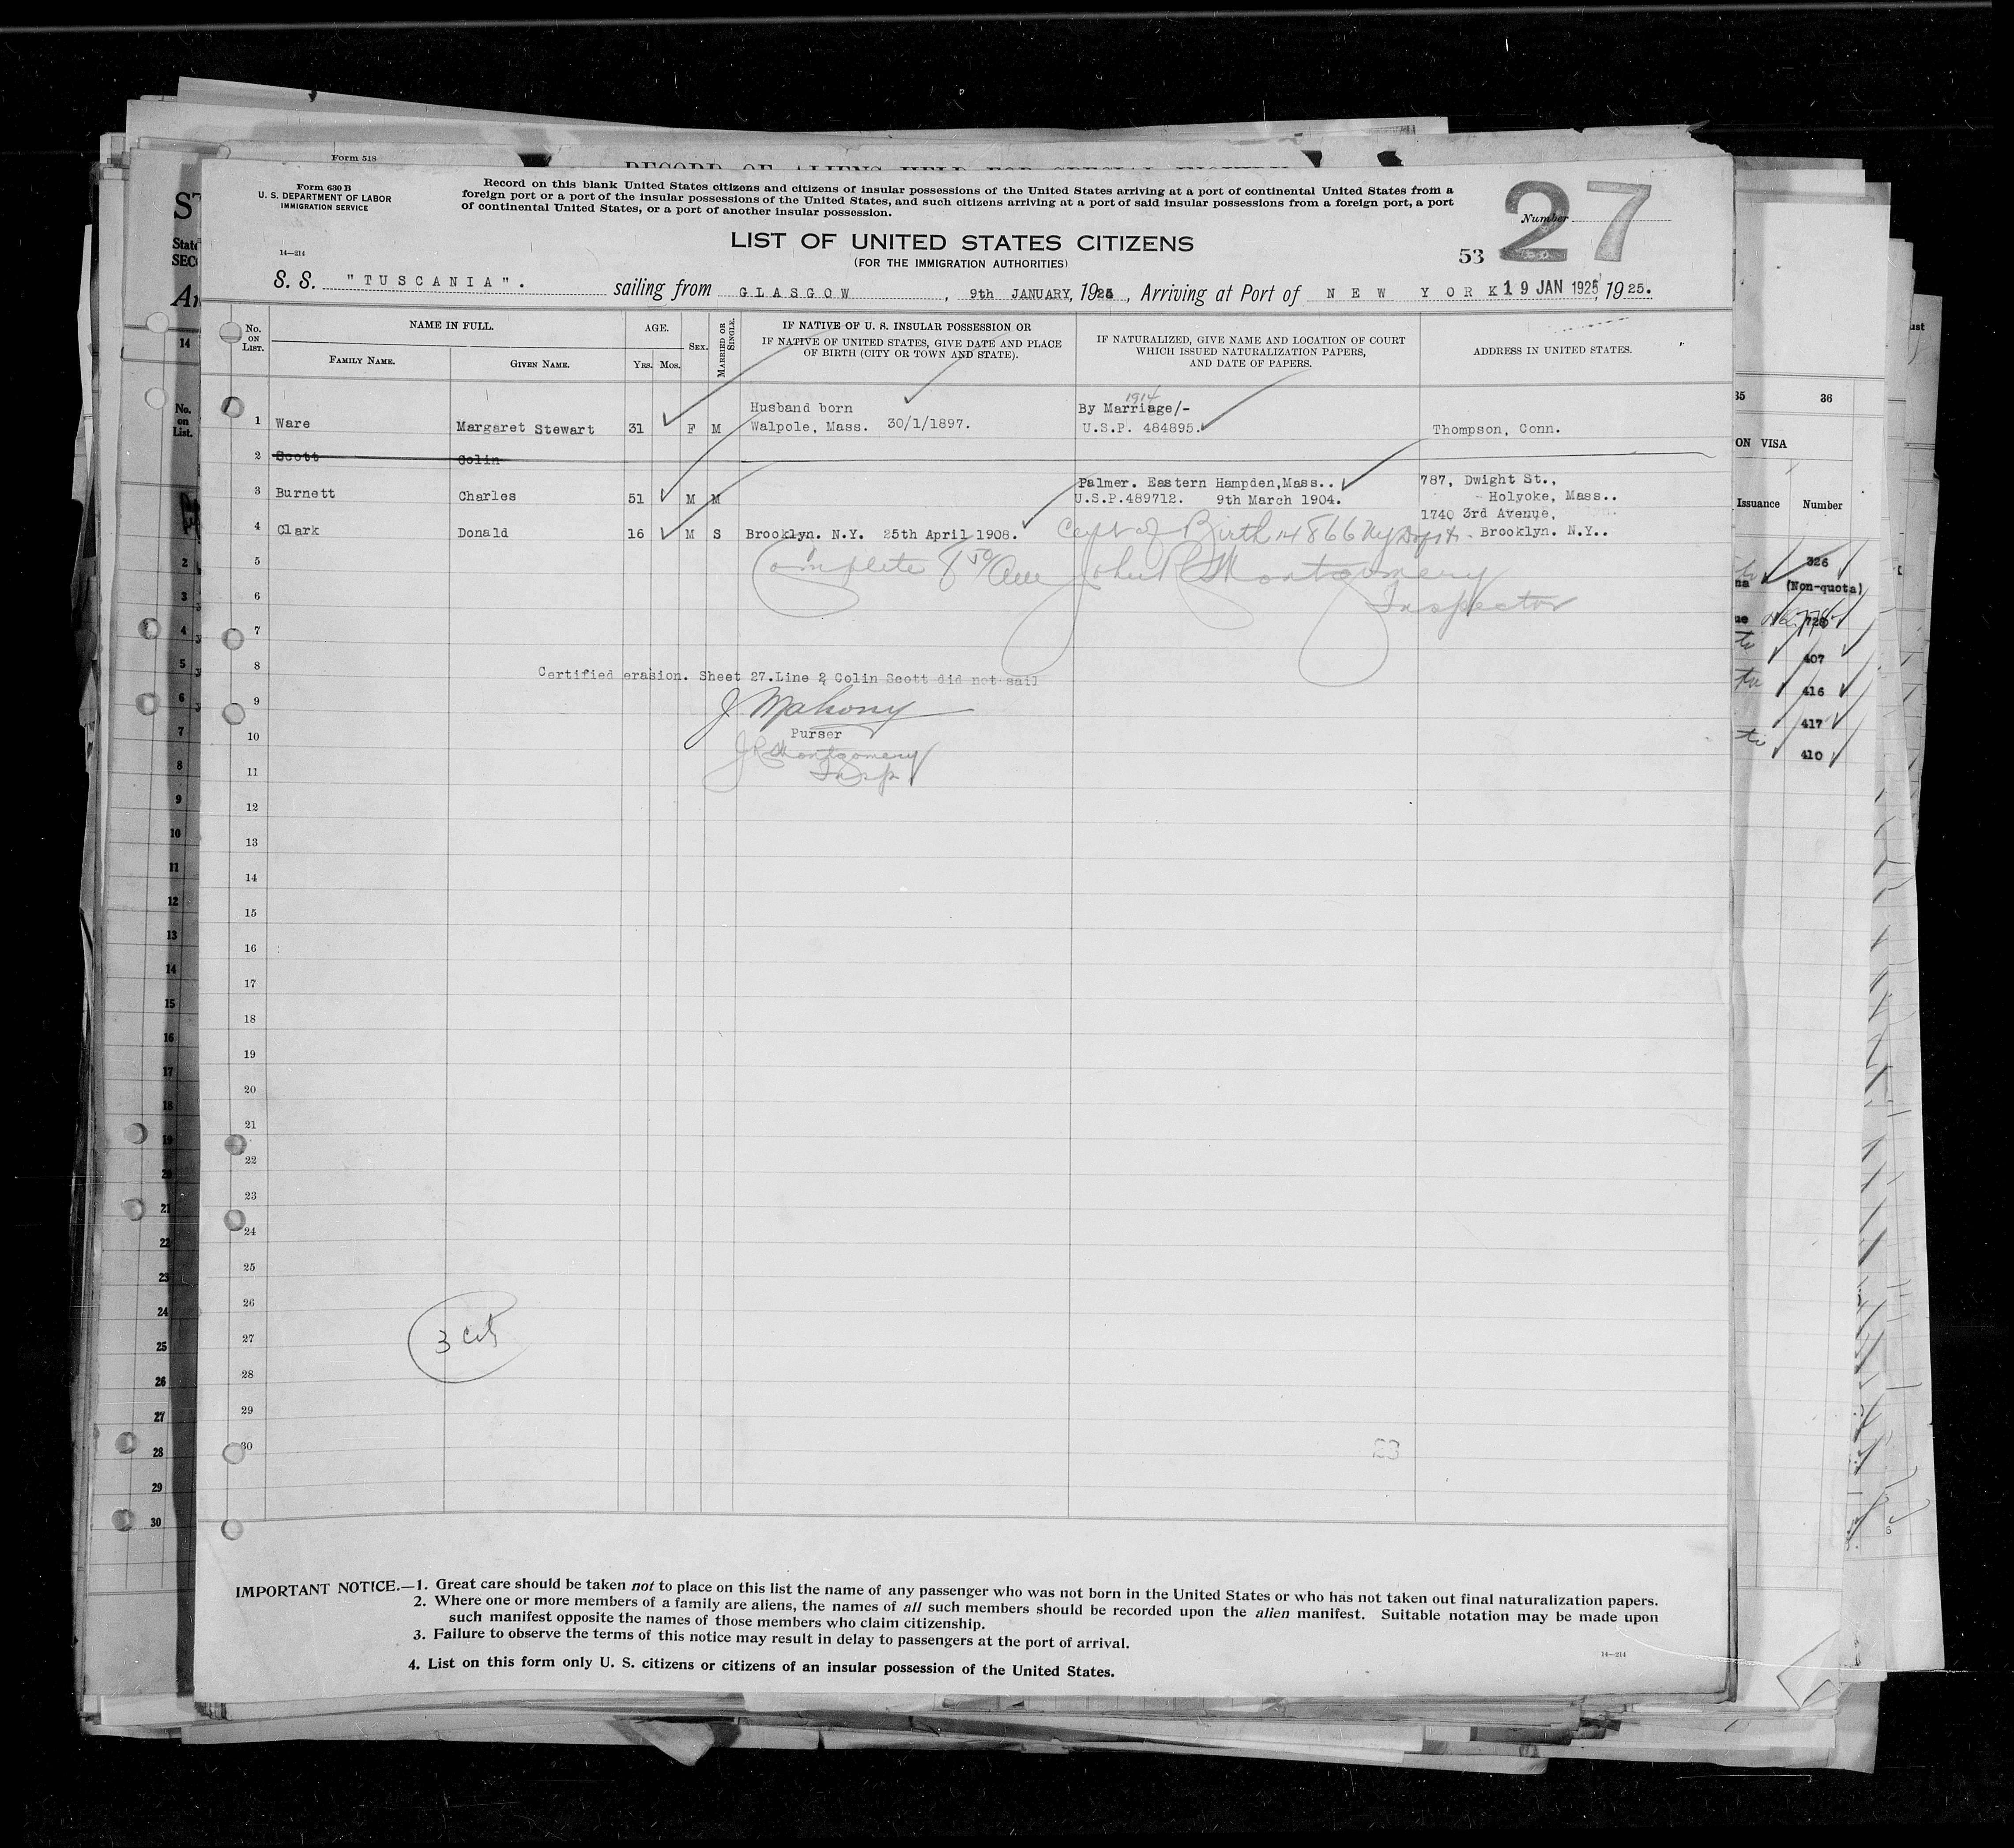 Form 518
Form 630 B
U. S. DEPARTMENT OF LABOR
IMMIGRATION SERVICE
Record on this blank United States citizens and citizens of insular possessions of the United States arriving at a port of continental United States from a
foreign port or a port of the insular possessions of the United States, and such citizens arriving at a port of said insular possessions from a foreign port, a port
of continental United States, or a port of another insular possession.
27
Number
53
LIST OF UNITED STATES CITIZENS
(FOR THE IMMIGRATION AUTHORITIES)
14—214
S. S. "TUSCANIA". sailing from GLASGOW, 9th JANUARY, 1925, Arriving at Port of NEW YORK 19 JAN 1925, 1925.
No. ON LIST.
NAME IN FULL.
FAMILY NAME.
GIVEN NAME.
AGE.
YRS. MOS.
SEX.
MARRIED OR SINGLE.
IF NATIVE OF U. S. INSULAR POSSESSION OR
IF NATIVE OF UNITED STATES, GIVE DATE AND PLACE
OF BIRTH (CITY OR TOWN AND STATE).
IF NATURALIZED, GIVE NAME AND LOCATION OF COURT
WHICH ISSUED NATURALIZATION PAPERS,
AND DATE OF PAPERS.
ADDRESS IN UNITED STATES.
1914
Husband born By Marriage/-
1 Ware Margaret Stewart 31 F M Walpole, Mass. 30/1/1897. U.S.P. 484895. Thompson, Conn.
2 Scott Colin
Palmer. Eastern Hampden, Mass.. 787, Dwight St.,
3 Burnett Charles 51 M M U.S.P.489712. 9th March 1904. Holyoke, Mass..
1740 3rd Avenue,
4 Clark Donald 16 M S Brooklyn. N.Y. 25th April 1908. Cert of Birth 14866 NY Brooklyn. N.Y..
5 Complete John R Montgomery
6 Inspector
7
8 Certified erasion. Sheet 27. Line 2 Colin Scott did not sail
9 J Mahony
10 Purser
J R Montgomery
11 Insp
12
13
14
15
16
17
18
19
20
21
22
23
24
25
26
27 3 cit
28
29
30
23
IMPORTANT NOTICE.—1. Great care should be taken not to place on this list the name of any passenger who was not born in the United States or who has not taken out final naturalization papers.
2. Where one or more members of a family are aliens, the names of all such members should be recorded upon the alien manifest. Suitable notation may be made upon
such manifest opposite the names of those members who claim citizenship.
3. Failure to observe the terms of this notice may result in delay to passengers at the port of arrival.
4. List on this form only U. S. citizens or citizens of an insular possession of the United States.
14—214
14
No. on List.
2
3
4
5
6
7
8
9
10
11
12
13
14
15
16
17
18
19
20
21
22
23
24
25
26
27
28
29
30
35 36
ON VISA
Issuance Number
326
(Non-quota)
407
416
417
410